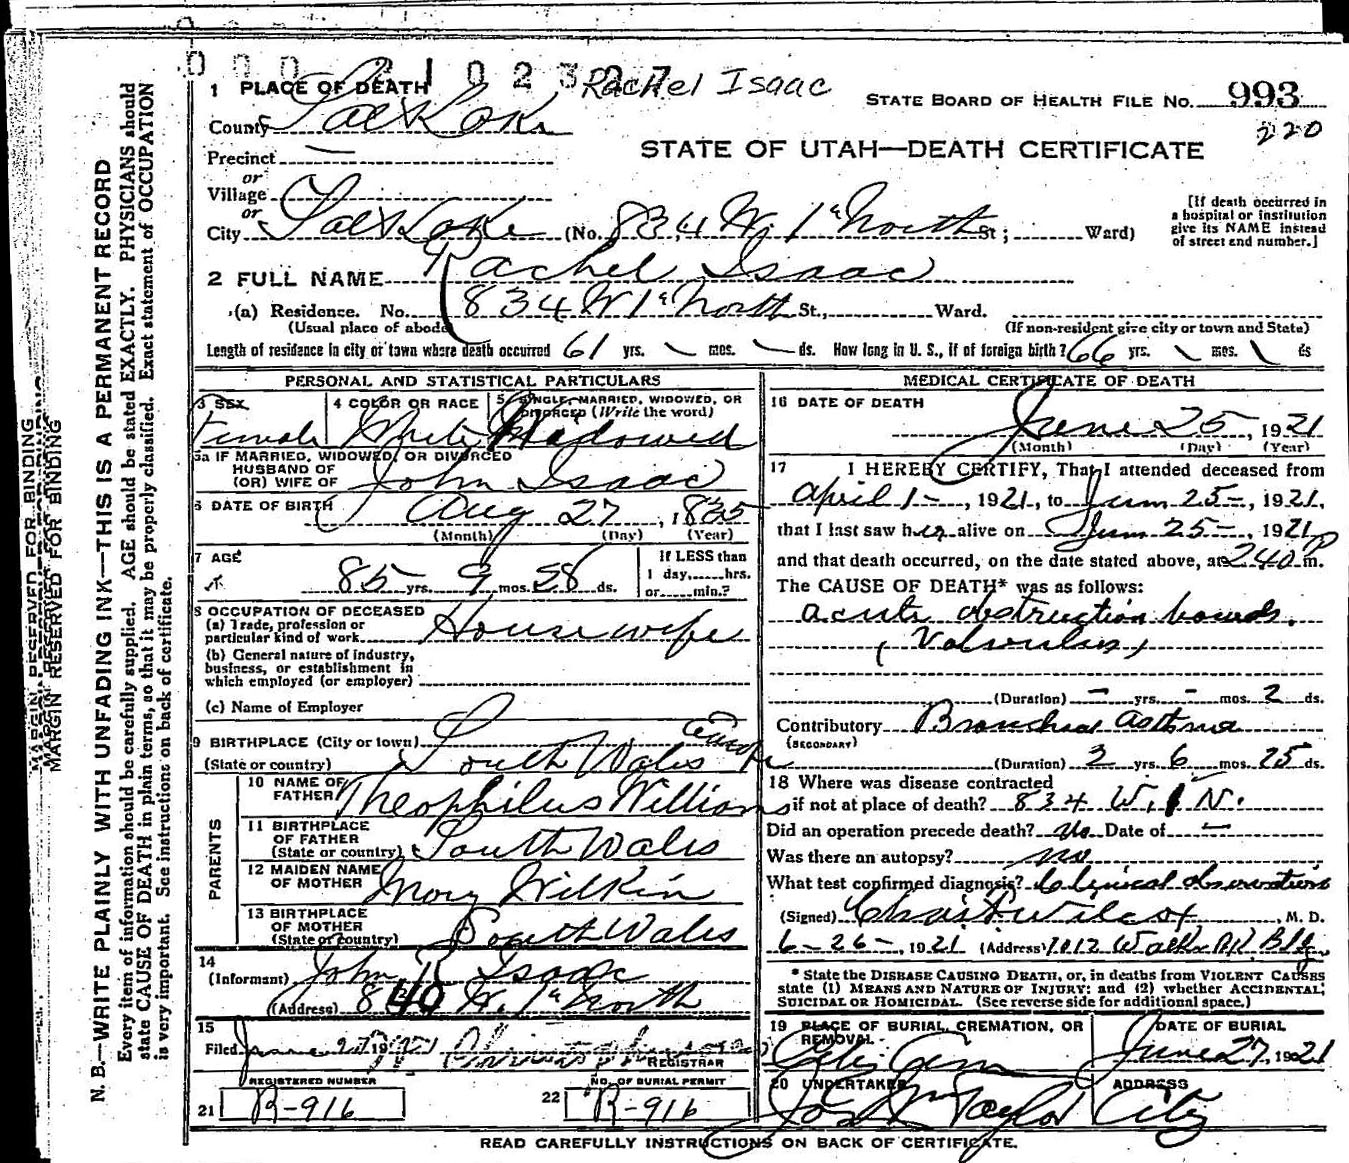 000 21 023 27 Rachel Isaac
1 PLACE OF DEATH
STATE BOARD OF HEALTH FILE No. 993
County Salt Lake
220
Precinct —
STATE OF UTAH—DEATH CERTIFICATE
or
Village
or
City Salt Lake (No. 834 W. 1st North St; Ward)
[If death occurred in
a hospital or institution
give its NAME instead
of street end number.]
2 FULL NAME Rachel Isaac
(a) Residence. No. 834 W 1st North St., Ward.
(Usual place of abode) (If non-resident give city or town and State)
Length of residence in city or town where death occurred 61 yrs. \ mos. \ ds. How long in U. S., if of foreign birth? 66 yrs. \ mos. \ ds
PERSONAL AND STATISTICAL PARTICULARS
3 SEX 4 COLOR OR RACE 5 SINGLE, MARRIED, WIDOWED, OR
DIVORCED (Write the word)
Female White Widowed
5a IF MARRIED, WIDOWED, OR DIVORCED
HUSBAND OF
(OR) WIFE OF John Isaac
6 DATE OF BIRTH Aug 27, 1835
(Month) (Day) (Year)
7 AGE If LESS than
85 yrs. 9 mos. 28 ds. 1 day,......hrs.
or......min.?
8 OCCUPATION OF DECEASED
(a) Trade, profession or
particular kind of work Housewife
(b) General nature of industry,
business, or establishment in
which employed (or employer)
(c) Name of Employer
9 BIRTHPLACE (City or town)
(State or country) South Wales Europe
PARENTS
10 NAME OF
FATHER Theophilus Williams
11 BIRTHPLACE
OF FATHER
(State or country) South Wales
12 MAIDEN NAME
OF MOTHER Mary Wilkin
13 BIRTHPLACE
OF MOTHER
(State or country) South Wales
14
(Informant) John R Isaac
(Address) 840 W. 1st North
15
Filed June 27 1921
REGISTRAR
REGISTERED NUMBER NO. OF BURIAL PERMIT
21 R-916 22 R-916
MEDICAL CERTIFICATE OF DEATH
16 DATE OF DEATH
June 25, 1921
(Month) (Day) (Year)
17 I HEREBY CERTIFY, That I attended deceased from
April 1-, 1921, to Jun 25-, 1921,
that I last saw her alive on Jun 25-, 1921
and that death occurred, on the date stated above, at 240 P m.
The CAUSE OF DEATH* was as follows:
acute obstruction bowels.
(Volvulus)
(Duration) - yrs. - mos. 2 ds.
Contributory Bronchial asthma
(SECONDARY)
(Duration) 2 yrs. 6 mos. 25 ds.
18 Where was disease contracted
if not at place of death? 834 W. 1 N.
Did an operation precede death? no Date of —
Was there an autopsy? no
What test confirmed diagnosis? Clinical observations
(Signed) Chas F Wilcox, M. D.
6-26-, 1921 (Address) 1012 Walker Bk Bldg.
* State the DISEASE CAUSING DEATH, or, in deaths from VIOLENT CAUSES
state (1) MEANS AND NATURE OF INJURY; and (2) whether ACCIDENTAL,
SUICIDAL OR HOMICIDAL. (See reverse side for additional space.)
19 PLACE OF BURIAL, CREMATION, OR
REMOVAL DATE OF BURIAL
City Cem June 27, 1921
20 UNDERTAKER ADDRESS
Jos Wm Taylor City
READ CAREFULLY INSTRUCTIONS ON BACK OF CERTIFICATE.
MARGIN RESERVED FOR BINDING
MARGIN RESERVED FOR BINDING
N. B.—WRITE PLAINLY WITH UNFADING INK—THIS IS A PERMANENT RECORD
Every item of information should be carefully supplied. AGE should be stated EXACTLY. PHYSICIANS should
state CAUSE OF DEATH in plain terms, so that it may be properly classified. Exact statement of OCCUPATION
is very important. See instructions on back of certificate.